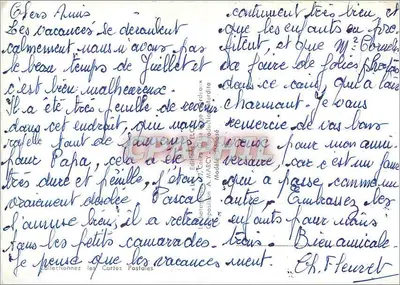 Chers Amis
Les vacances se déroulent
calmement nous n'avons pas
le beau temps de Juillet et
c'est bien malheureux.
Il a été très pénible de venir
dans cet endroit, qui nous
rappelle tant de
pour Papa, cela a été
très dure et pénible, j'étais
vraiment désolée, Pascal
s'amuse bien, il a retrouvé
tous les petits camarades.
Je pense que les vacances
continuent très bien, et
que les enfants en pro-
fitent, et que Mr
va faire de jolies photos
dans ce coin, qui a l'air
charmant. Je vous
remercie de vos bons
vœux pour mon anni
versaire, car c'est un jour
qui a passé comme un
autre. Embrassez les
enfants pour nous
trois. Bien amicale-
ment.
Ch. Fleuret
Collectionnez les Cartes Postales